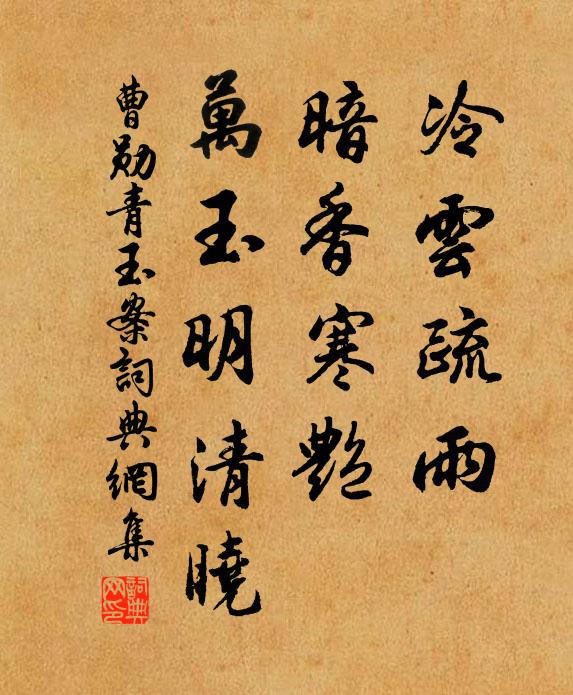 冷雲疏雨
暗香寒艷
萬玉明清曉
曹勛青玉案詞典網集
詞典网印